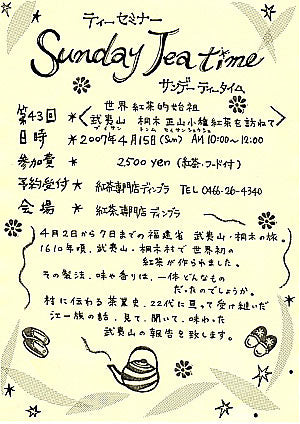 ティーセミナー
Sunday Tea time
サンデーティータイム
世界紅茶的始祖
第43回 * 〈武夷山 桐木 正山小種紅茶を訪ねて〉
日時 * 2007年4月15日(Sun) AM10:00〜12:00
参加費 * 2500yen(紅茶・フード付)
予約受付 * 紅茶専門店ディンブラ TEL 0466-26-4340
会場 * 紅茶専門店ディンブラ
4月2日から7日までの福建省 武夷山・桐木の旅。
1610年頃、武夷山・桐木村で世界初の
紅茶が作られました。
その製法、味や香りは、一体どんなもの
だったのでしょうか。
村に伝わる茶歴史、22代に亘って受け継いだ
江一族の話、見て、聞いて、味わった
武夷山の報告を致します。